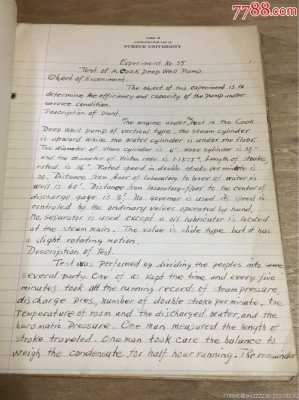 7788.com
PURDUE UNIVERSITY
Experiment No. 35
Test of A Cook Deep Well Pump.
Object of Experiment.
The object of this experiment is to
determine the efficiency and capacity of the pump under
service condition.
Description of Plant.
The engine under test is the Cook
Deep Well pump of vertical type, the steam cylinder
is upward while the water cylinder is under the floor.
The diameter of steam cylinder is
and the diameter of piston rod is length of stroke
rated is Rated speed in double stroke per minute is
Distance from floor of laboratory to level of water in
well is 60'. Distance from laboratory floor to the center of
discharge gage is No governor is used its speed is
controlled by the ordinary valves operated by hand.
No separator is used except a oil lubricator is located
at the steam main. The valve is slide type, but it has
a slight rotating motion.
Description of Test.
Test was performed by dividing the peoples into
several parts. One of is kept the time and every five
minutes took all the running record of steam pressure
discharge pres, number of double stroke per minute, the
temperature of room and the discharged water, and the
barometric pressure. One man measured the length of
stroke traveled. One man took care the balance to
weigh the condensate for half hour running. The remainder